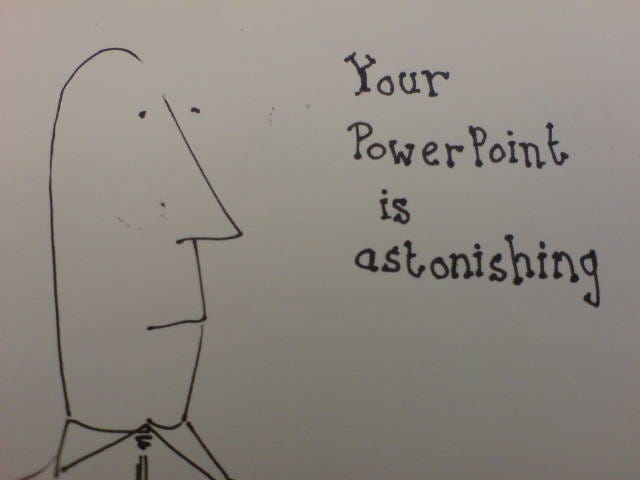 Your
PowerPoint
is
astonishing